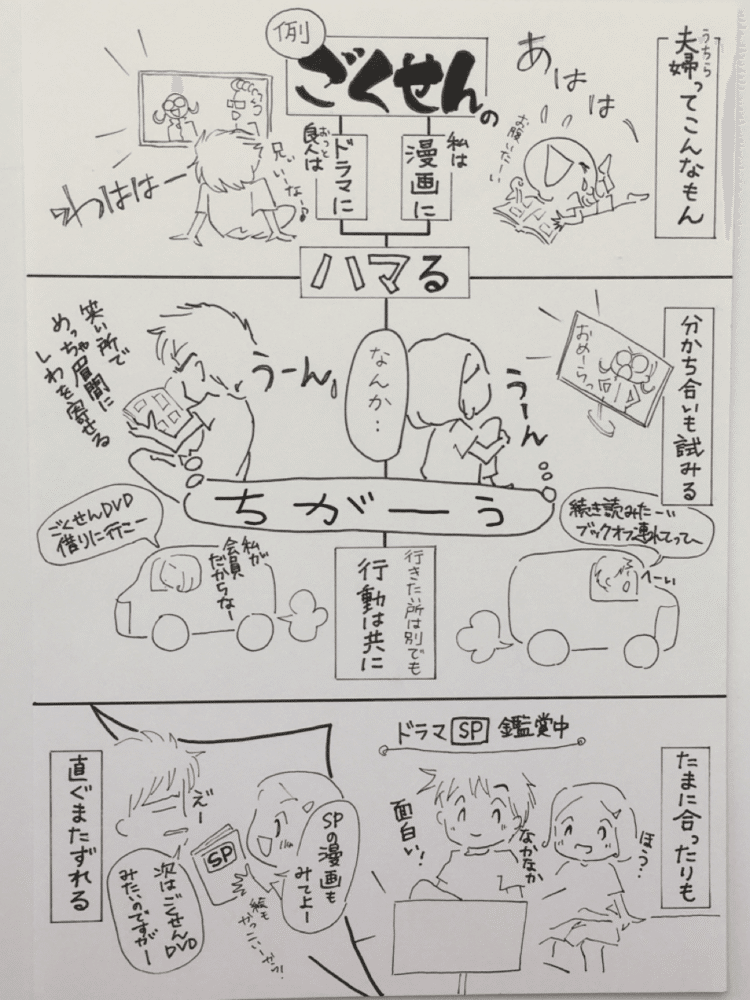 夫婦ってこんなもん
うちら
あはは
お腹いたーい
例
ごくせんの
私は
漫画に
良人は
おっと
ドラマに
ハマる
兄ぃーなー♪
わははー
分かち合いも試みる
おめーらっ
うーん
なんか…
うーん。
笑い所で
めっちゃ眉間に
しわを寄せる
ちがーう
続き読みたーい
ブックオフ連れてって〜
へーい
行きたい所は別でも
行動は共に
ごくせんDVD
借りに行こー
私が
会員
だからなー
たまに合ったりも
ドラマ SP 鑑賞中
ほう…
なかなか
面白い!
直ぐまたずれる
SPの漫画も
みてよー
SP
絵も
かっこいーせっ!
えー
次はごくせん
DVD
みたいのですがー